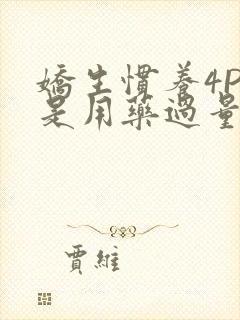 嬌生慣養4P
是用藥過量
賈維